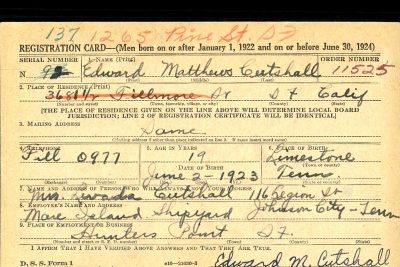 137 1265 Pine St. S.F.
REGISTRATION CARD—(Men born on or after January 1, 1922 and on or before June 30, 1924)
SERIAL NUMBER 1. NAME (Print) ORDER NUMBER
N Edward Matthews Cutshall 11525
(First) (Middle) (Last)
2. PLACE OF RESIDENCE (Print)
3681A Fillmore St S F Calif
(Number and street) (Town, township, village, or city) (County) (State)
[THE PLACE OF RESIDENCE GIVEN ON THE LINE ABOVE WILL DETERMINE LOCAL BOARD
JURISDICTION; LINE 2 OF REGISTRATION CERTIFICATE WILL BE IDENTICAL]
3. MAILING ADDRESS
Same
4. TELEPHONE 5. AGE IN YEARS 6. PLACE OF BIRTH
Fill 0977 19 Limestone
DATE OF BIRTH
June 2-1923 Tenn.
7. NAME AND ADDRESS OF PERSON WHO WILL ALWAYS KNOW YOUR ADDRESS
Mrs. Cutshall 116 Legion St
8. EMPLOYER'S NAME AND ADDRESS
Mare Island Shipyard Johnson City-Tenn
9. PLACE OF EMPLOYMENT OR BUSINESS
Hunters Point S.F.
(Number and street or R. F. D. number) (Town) (County) (State)
I AFFIRM THAT I HAVE VERIFIED ABOVE ANSWERS AND THAT THEY ARE TRUE.
D. S. S. Form 1 Edward M. Cutshall